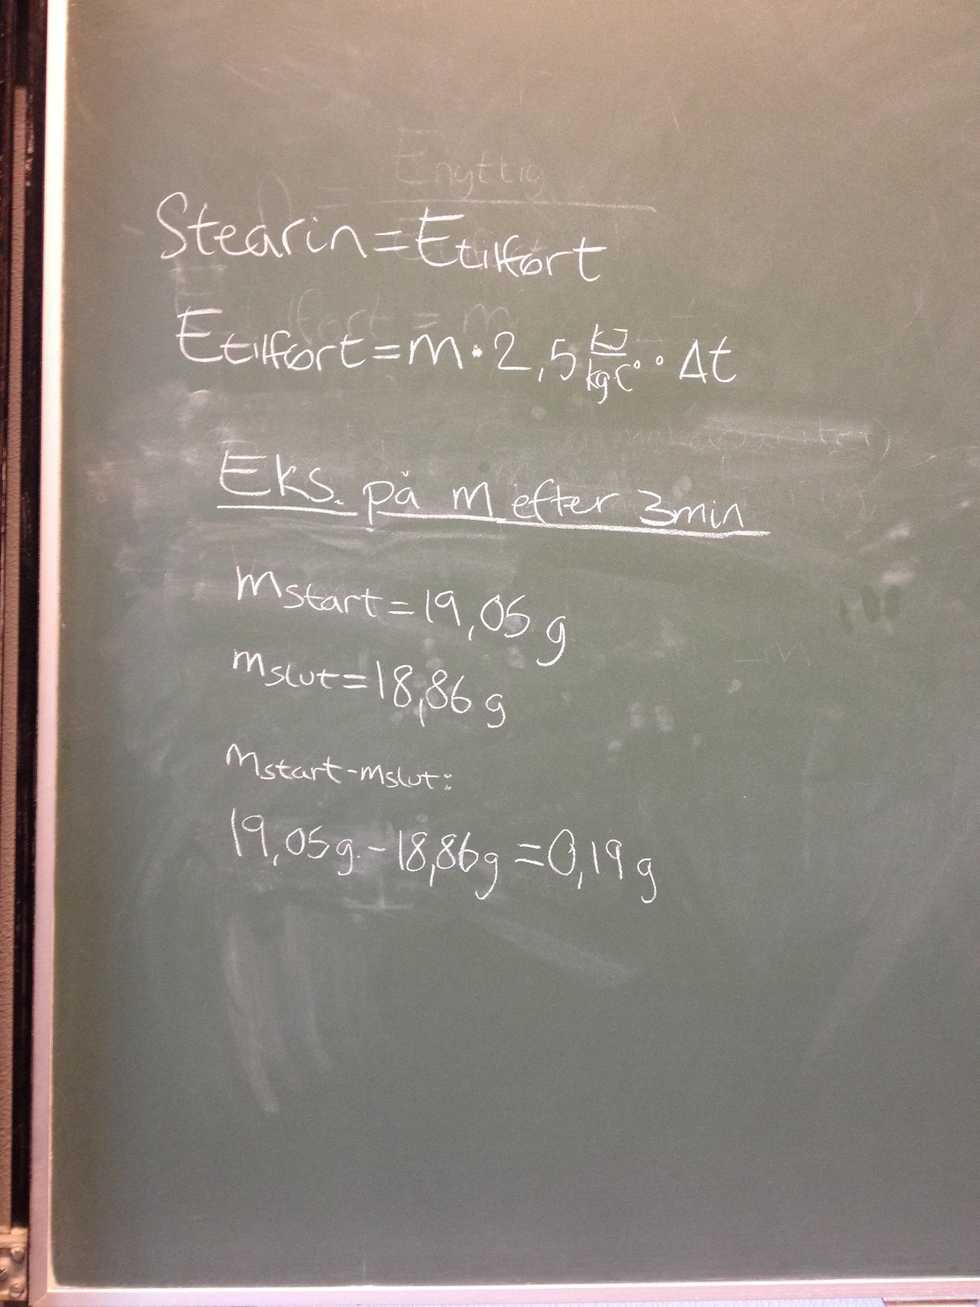 Enyttig
Stearin = Etilført
Etilført = m · 2,5 kJ/kg·C° · Δt
Eks. på m efter 3min
mstart = 19,05 g
mslut = 18,86 g
mstart-mslut:
19,05g - 18,86g = 0,19 g